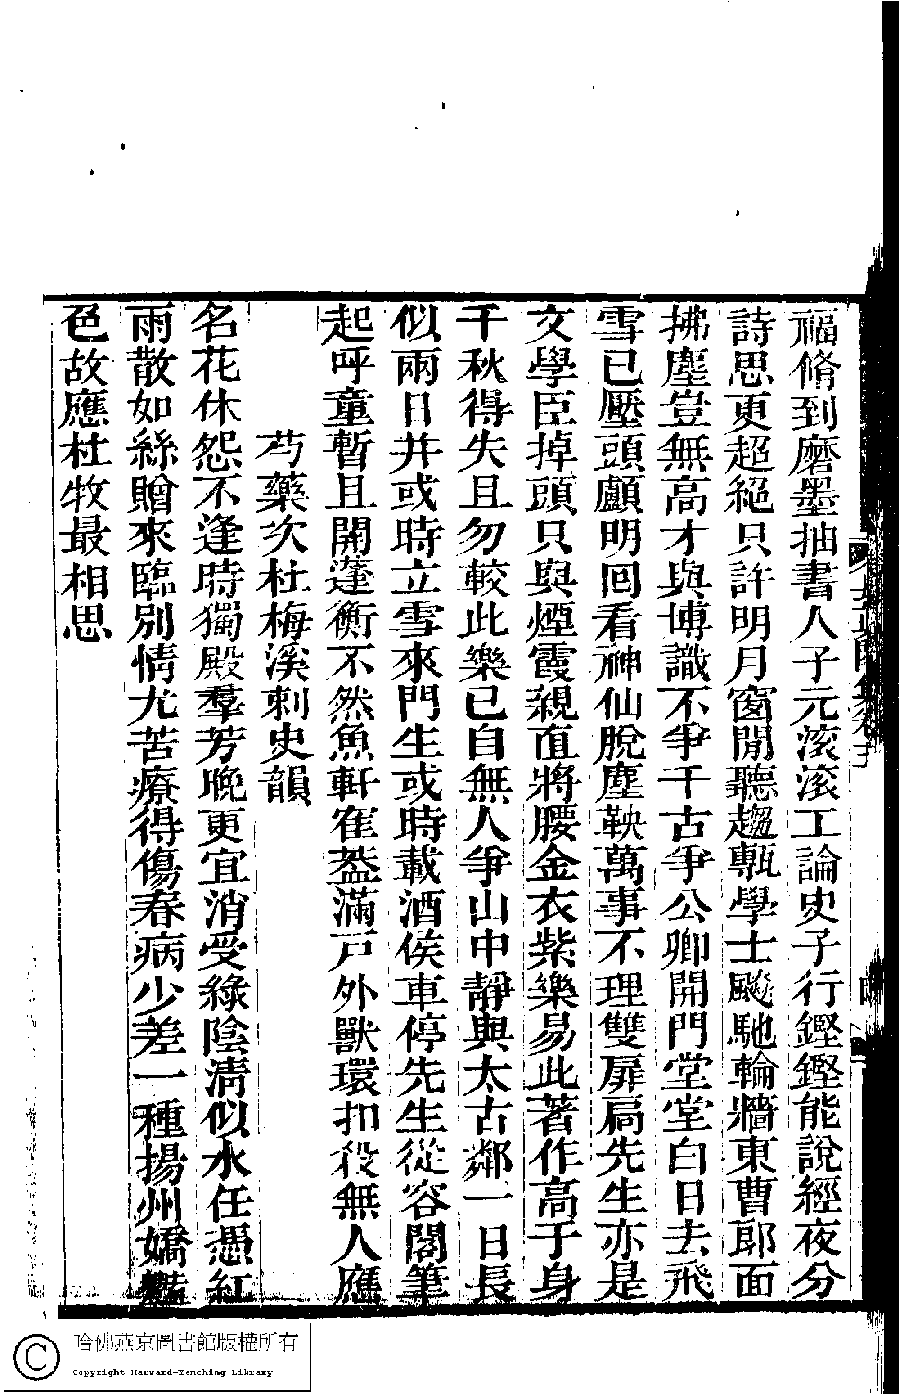 福脩到磨墨抽書人子元滾滾工論史子行鏗鏗能說經夜分
詩思更超絕只許明月窗間聽趨甎學士飈馳輪牆東曹郎面
拂塵豈無高才與博識不爭千古爭公卿開門堂堂白日去飛
雪已壓頭顱明回看神仙脫塵鞅萬事不理雙扉扃先生亦是
文學臣掉頭只與煙霞親直將腰金衣紫樂易此著作高于身
千秋得失且勿較此樂已自無人爭山中靜與太古鄰一日長
似兩日并或時立雪來門生或時載酒侯車停先生從容閣筆
起呼童暫且開蓬衡不然魚軒隺葢滿戸外獸環扣殺無人應
芍藥次杜梅溪刺史韻
名花休怨不逢時獨殿羣芳晚更宜消受綠陰清似水任憑紅
雨散如絲贈來臨別情尤苦療得傷春病少差一種揚州嬌豔
色故應杜牧最相思
哈佛燕京圖書館版權所有
Copyright Harvard-Yenching Library